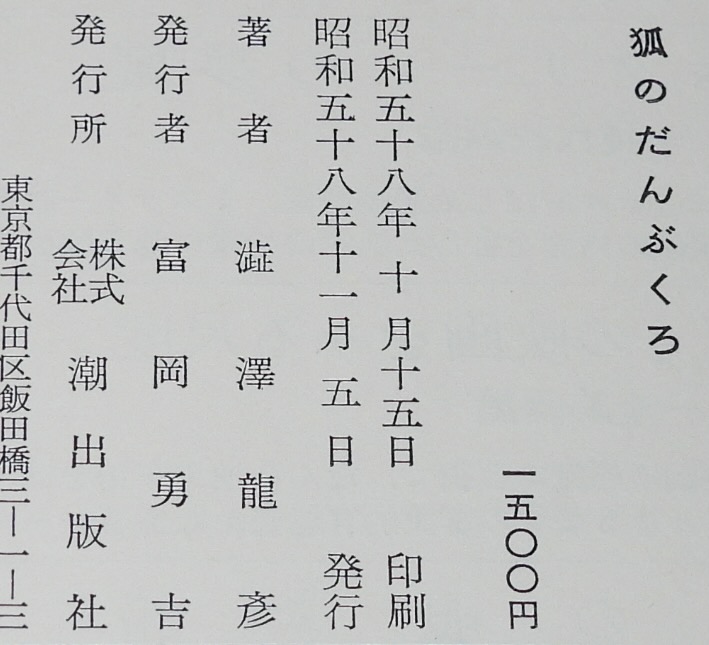 狐のだんぶくろ
一五〇〇円
昭和五十八年十月十五日印刷
昭和五十八年十一月五日発行
著者 澁澤龍彥
発行者 富岡勇吉
発行所 株式会社 潮出版社
東京都千代田区飯田橋三―一―三